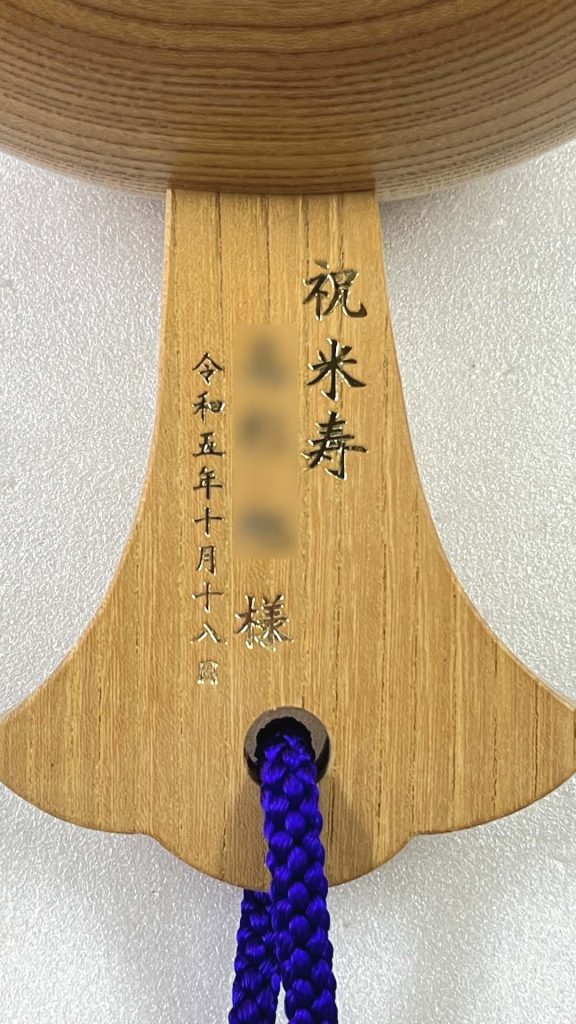 祝米寿
様
令和五年十月十八日